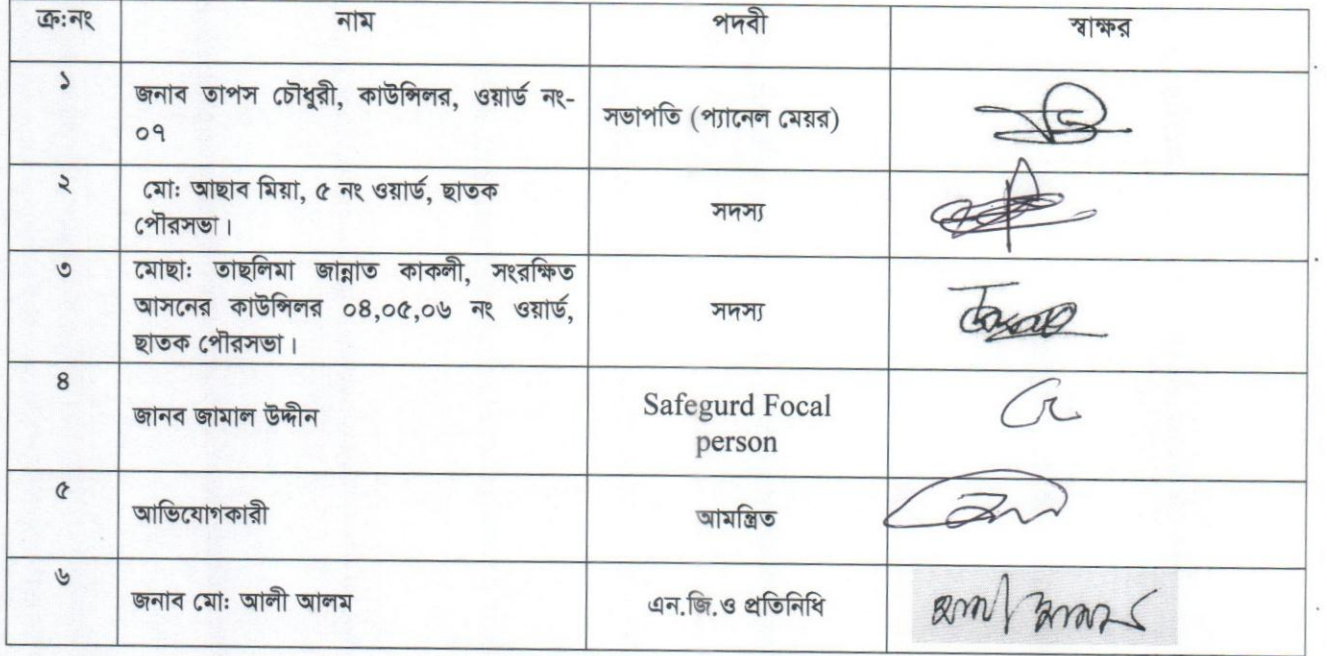 ক্র:নং নাম পদবী স্বাক্ষর
১ জনাব তাপস চৌধুরী, কাউন্সিলর, ওয়ার্ড নং-
০৭ সভাপতি (প্যানেল মেয়র)
২ মো: আছাব মিয়া, ৫ নং ওয়ার্ড, ছাতক
পৌরসভা। সদস্য
৩ মোছা: তাছলিমা জান্নাত কাকলী, সংরক্ষিত
আসনের কাউন্সিলর ০৪,০৫,০৬ নং ওয়ার্ড,
ছাতক পৌরসভা। সদস্য
৪ জানব জামাল উদ্দীন Safegurd Focal
person
৫ আভিযোগকারী আমন্ত্রিত
৬ জনাব মো: আলী আলম এন.জি.ও প্রতিনিধি